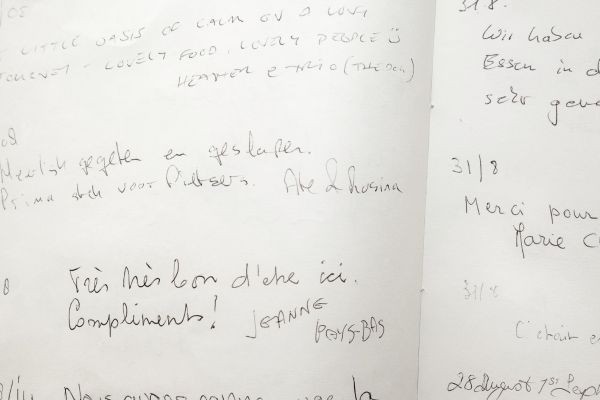 LITTLE OASIS OF CALM ON A LONG
LOVELY FOOD, LOVELY PEOPLE
HEATHER &
Heerlijk gegeten en geslapen.
Prima stek voor Fietsers. Ate & Rosina
Très très bon d'être ici.
Compliments! JEANNE
PAYS-BAS
31.8.
Wir haben
Essen in d
sehr gen
31/8
Merci pour
Marie C
31/8
C'était e
28 August 1st Sep